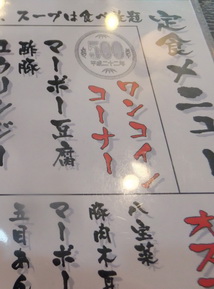 スープは食べ放題
定食メニュー
500
平成二十二年
ワンコイン
コーナー
マーボー豆腐
酢豚
ユウリンジー
八宝菜
豚肉木耳
マーボー
五目あん